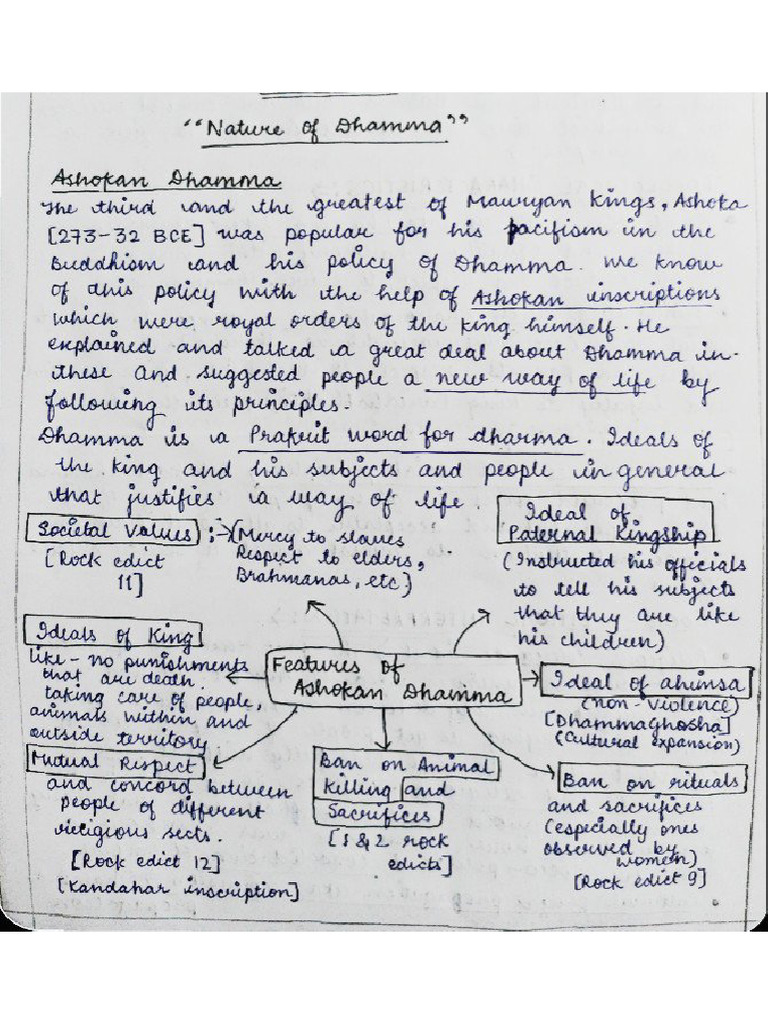 "Nature of Dhamma"
Ashokan Dhamma
The third and the greatest of Mauryan Kings, Ashoka
[273-32 BCE] was popular for his pacifism in the
Buddhism and his policy of Dhamma. We know
of this policy with the help of Ashokan inscriptions
which were royal orders of the king himself. He
explained and talked a great deal about Dhamma in
these and suggested people a new way of life by
following its principles.
Dhamma is a Prakrit word for dharma. Ideals of
the king and his subjects and people in general
that justifies a way of life.
Societal Values :→ (Mercy to slaves
Respect to elders,
Brahmanas, etc)
[Rock edict
11]
Ideal of
Paternal Kingship
(Instructed his officials
to tell his subjects
that they are like
his children)
Ideals of King
like - no punishments
that are death.
taking care of people,
animals within and
outside territory
Features of
Ashokan Dhamma
Ideal of ahimsa
(non-violence)
[Dhammaghosha]
(Cultural expansion)
Mutual Respect
and concord between
people of different
religious sects.
[Rock edict 12]
[Kandahar inscription]
Ban on Animal
Killing and
Sacrifices
[1 & 2 rock
edicts]
Ban on rituals
and sacrifices
(especially ones
observed by
women)
[Rock edict 9]